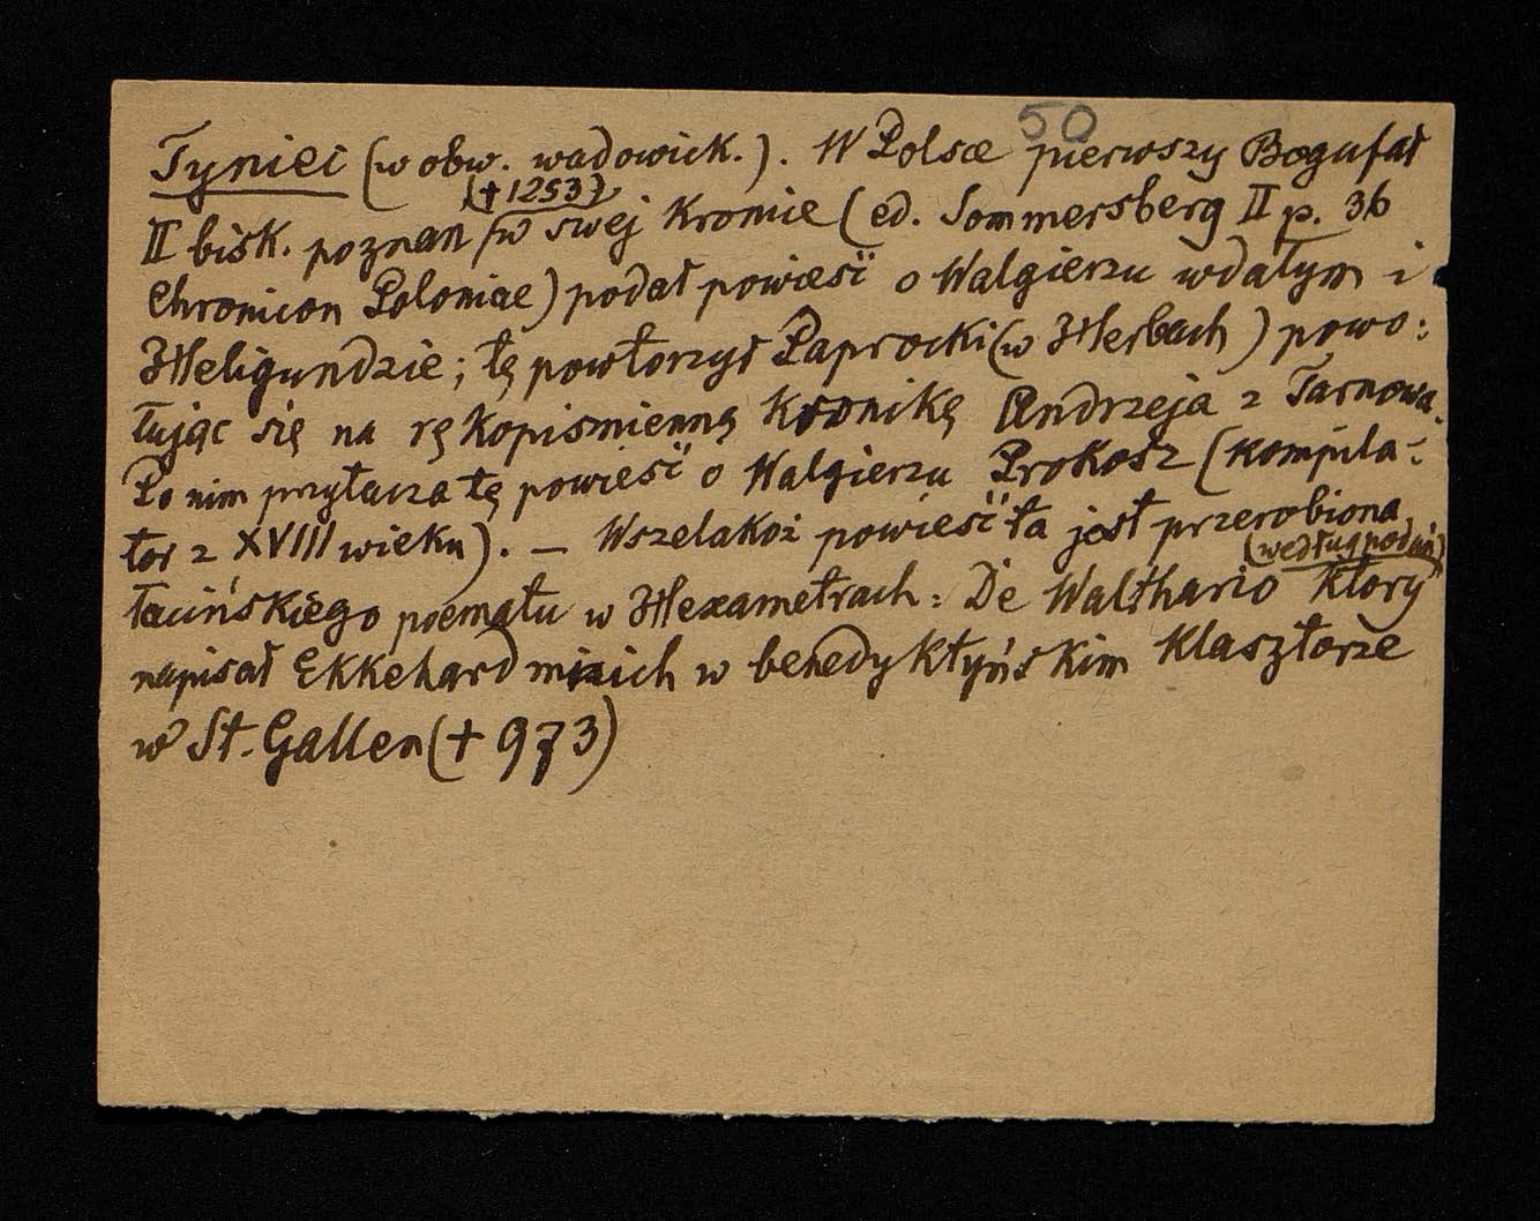 50
Tyniec (w obw. wadowick.). W Polsce pierwszy Bogufał
(†1253)
II bisk. poznan w swej Kronice (ed. Sommersberg II p. 36
Chronicon Poloniae) podał powieść o Walgierzu wdałym i
Heligundzie; tę powtorzył Paprocki (w Herbach) powo:
łując się na rękopismienną Kronikę Andrzeja z Tarnowa.
Po nim przytacza tę powieść o Walgierzu Prokosz (kompila-
tor z XVIII wieku). — Wszelakoż powieść ta jest przerobiona
(według podań)
łacińskiego poematu w Hexametrach: De Walthario Ktory
napisał Ekkehard mnich w benedyktyńskim Klasztorze
w St. Gallen († 973)